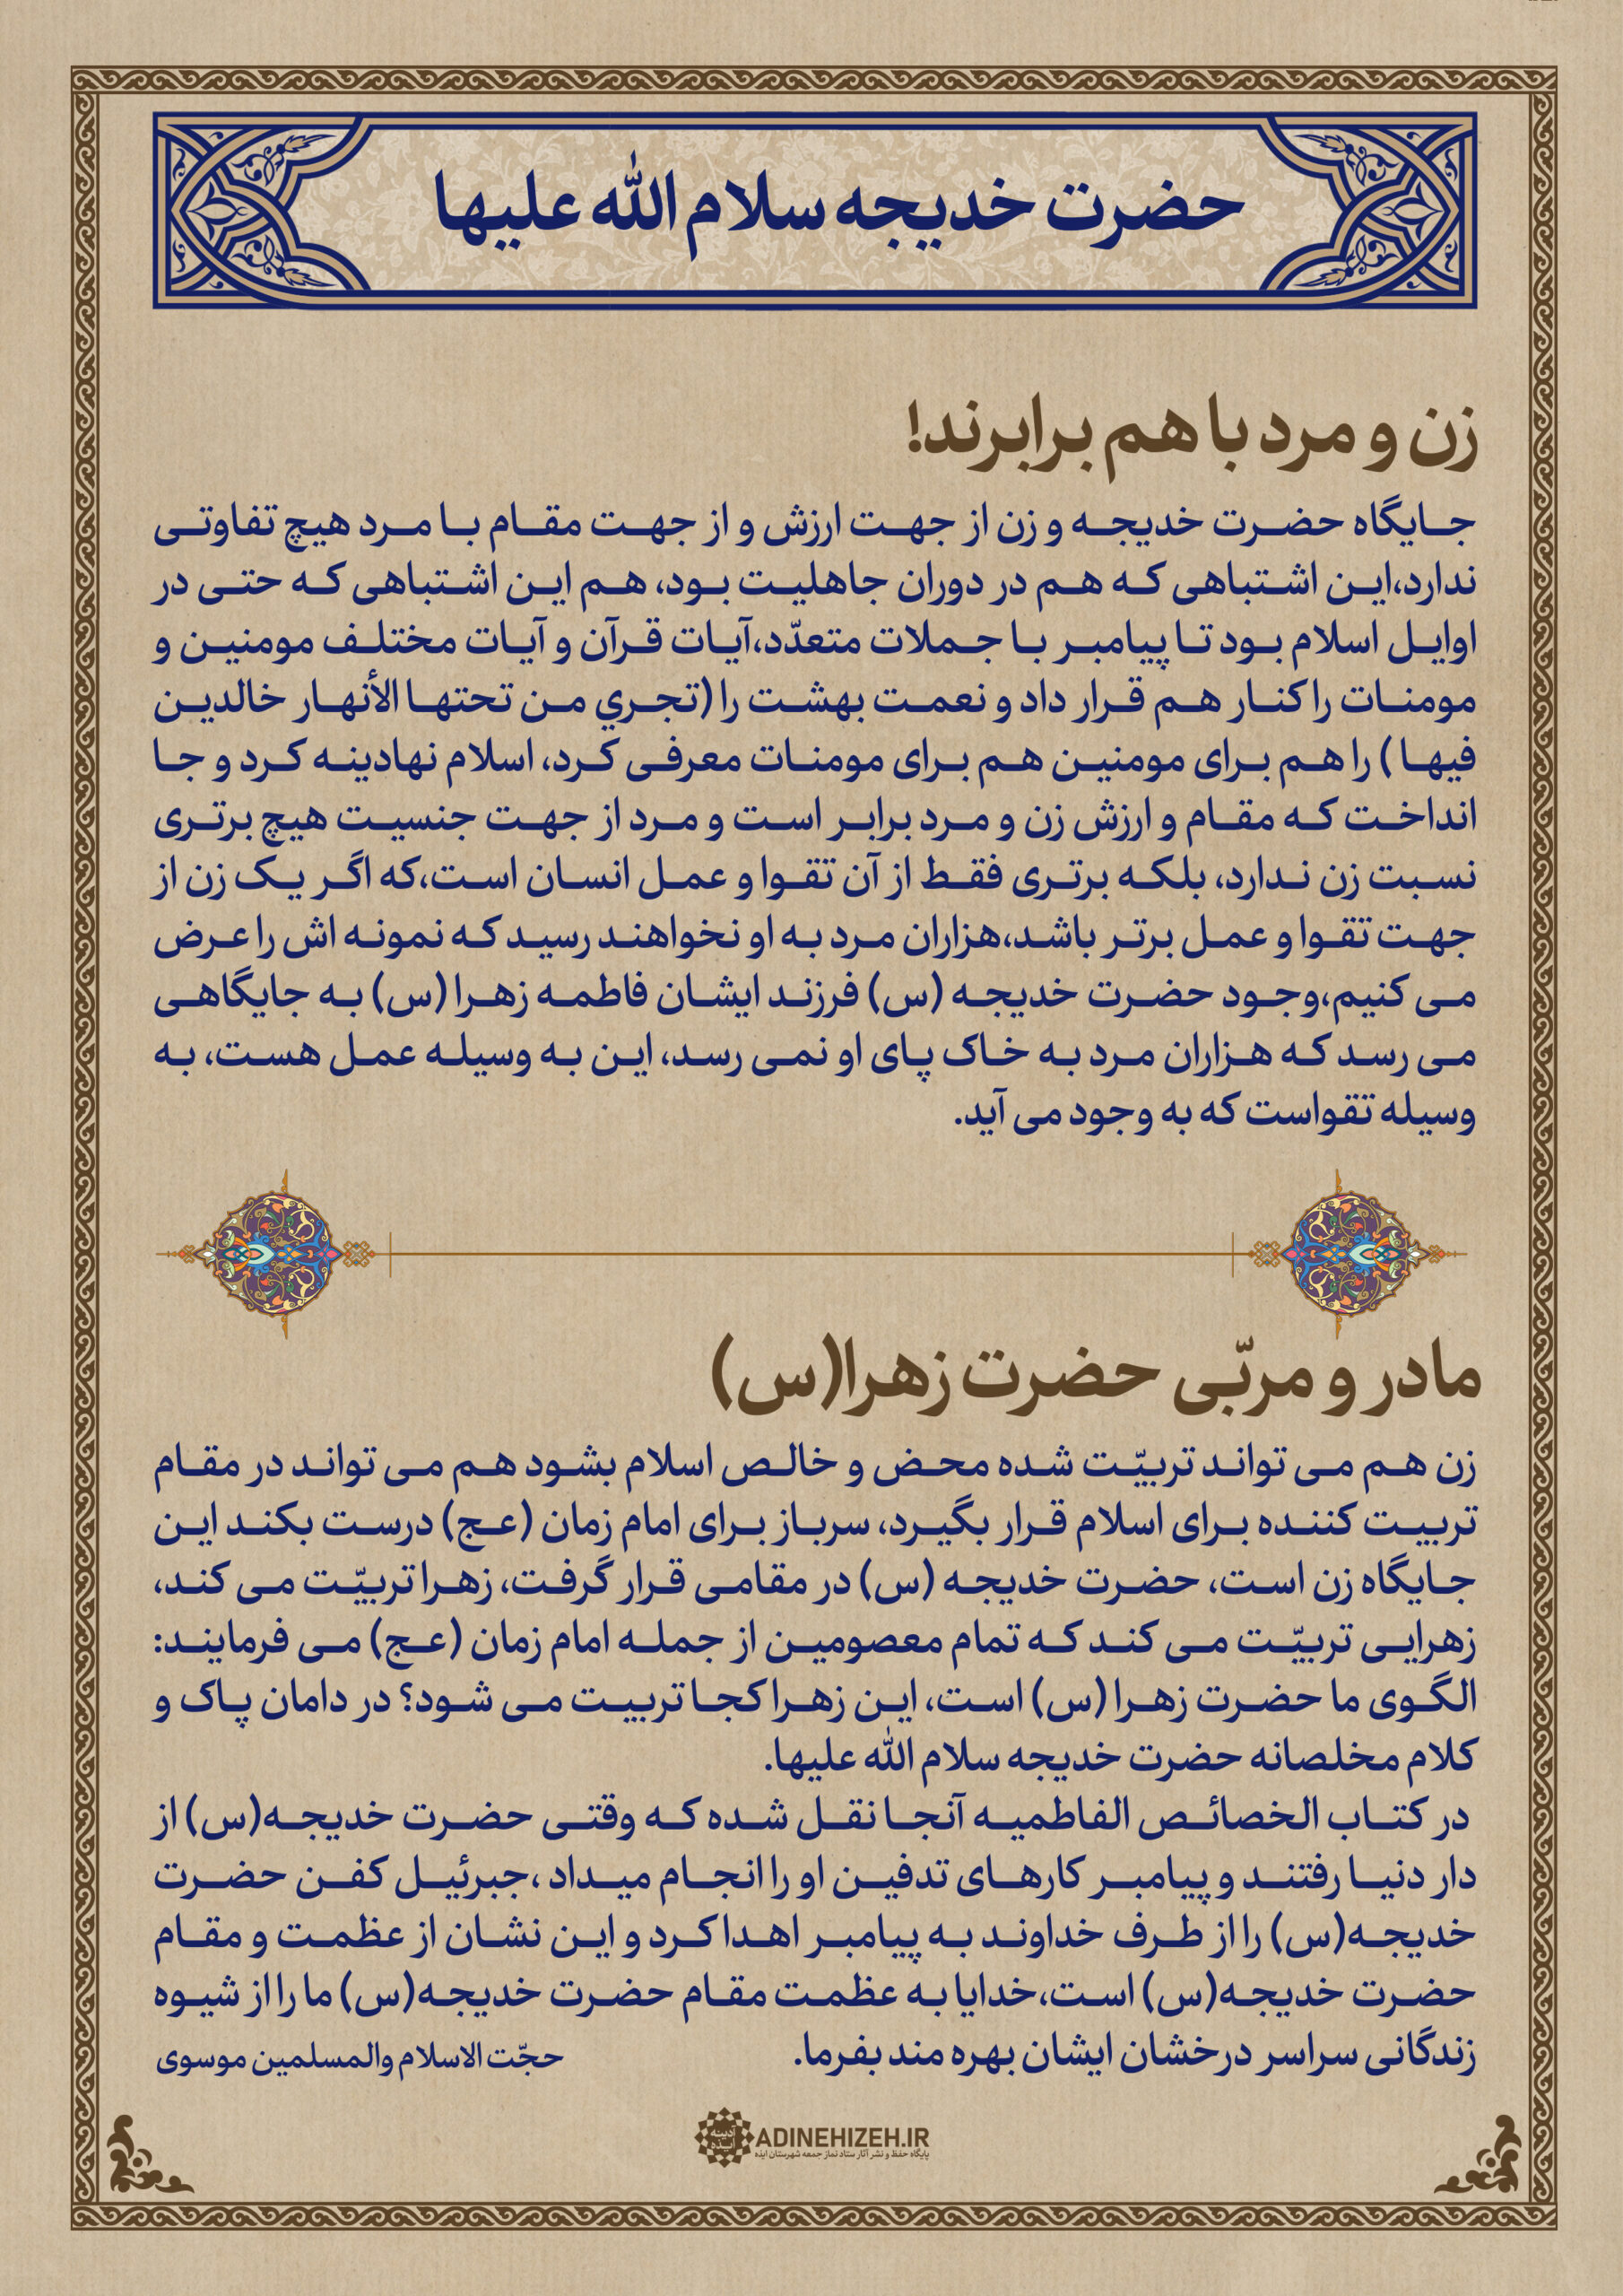 حضرت خدیجه سلام الله علیها
زن و مرد با هم برابرند!
جایگاه حضرت خدیجه و زن از جهت ارزش و از جهت مقام با مرد هیچ تفاوتی
ندارد،این اشتباهی که هم در دوران جاهلیت بود، هم این اشتباهی که حتی در
اوایل اسلام بود تا پیامبر با جملات متعدّد،آیات قرآن و آیات مختلف مومنین و
مومنات را کنار هم قرار داد و نعمت بهشت را (تجري من تحتها الأنهار خالدین
فیها ) را هم برای مومنین هم برای مومنات معرفی کرد، اسلام نهادینه کرد و جا
انداخت که مقام و ارزش زن و مرد برابر است و مرد از جهت جنسیت هیچ برتری
نسبت زن ندارد، بلکه برتری فقط از آن تقوا و عمل انسان است،که اگر یک زن از
جهت تقوا و عمل برتر باشد،هزاران مرد به او نخواهند رسید که نمونه اش را عرض
می کنیم،وجود حضرت خدیجه (س) فرزند ایشان فاطمه زهرا (س) به جایگاهی
می رسد که هزاران مرد به خاک پای او نمی رسد، این به وسیله عمل هست، به
وسیله تقواست که به وجود می آید.
مادر و مربّی حضرت زهرا(س)
زن هم می تواند تربیّت شده محض و خالص اسلام بشود هم می تواند در مقام
تربیت کننده برای اسلام قرار بگیرد، سرباز برای امام زمان (عج) درست بکند این
جایگاه زن است، حضرت خدیجه (س) در مقامی قرار گرفت، زهرا تربیّت می کند،
زهرایی تربیّت می کند که تمام معصومین از جمله امام زمان (عج) می فرمایند:
الگوی ما حضرت زهرا (س) است، این زهرا کجا تربیت می شود؟ در دامان پاک و
کلام مخلصانه حضرت خدیجه سلام الله علیها.
در کتاب الخصائص الفاطمیه آنجا نقل شده که وقتی حضرت خدیجه(س) از
دار دنیا رفتند و پیامبر کارهای تدفین او را انجام میداد ،جبرئیل کفن حضرت
خدیجه(س) را از طرف خداوند به پیامبر اهدا کرد و این نشان از عظمت و مقام
حضرت خدیجه(س) است،خدایا به عظمت مقام حضرت خدیجه(س) ما را از شیوه
زندگانی سراسر درخشان ایشان بهره مند بفرما.
حجّت الاسلام والمسلمین موسوی
ADINEHIZEH.IR
پایگاه حفظ و نشر آثار ستاد نماز جمعه شهرستان ایذه